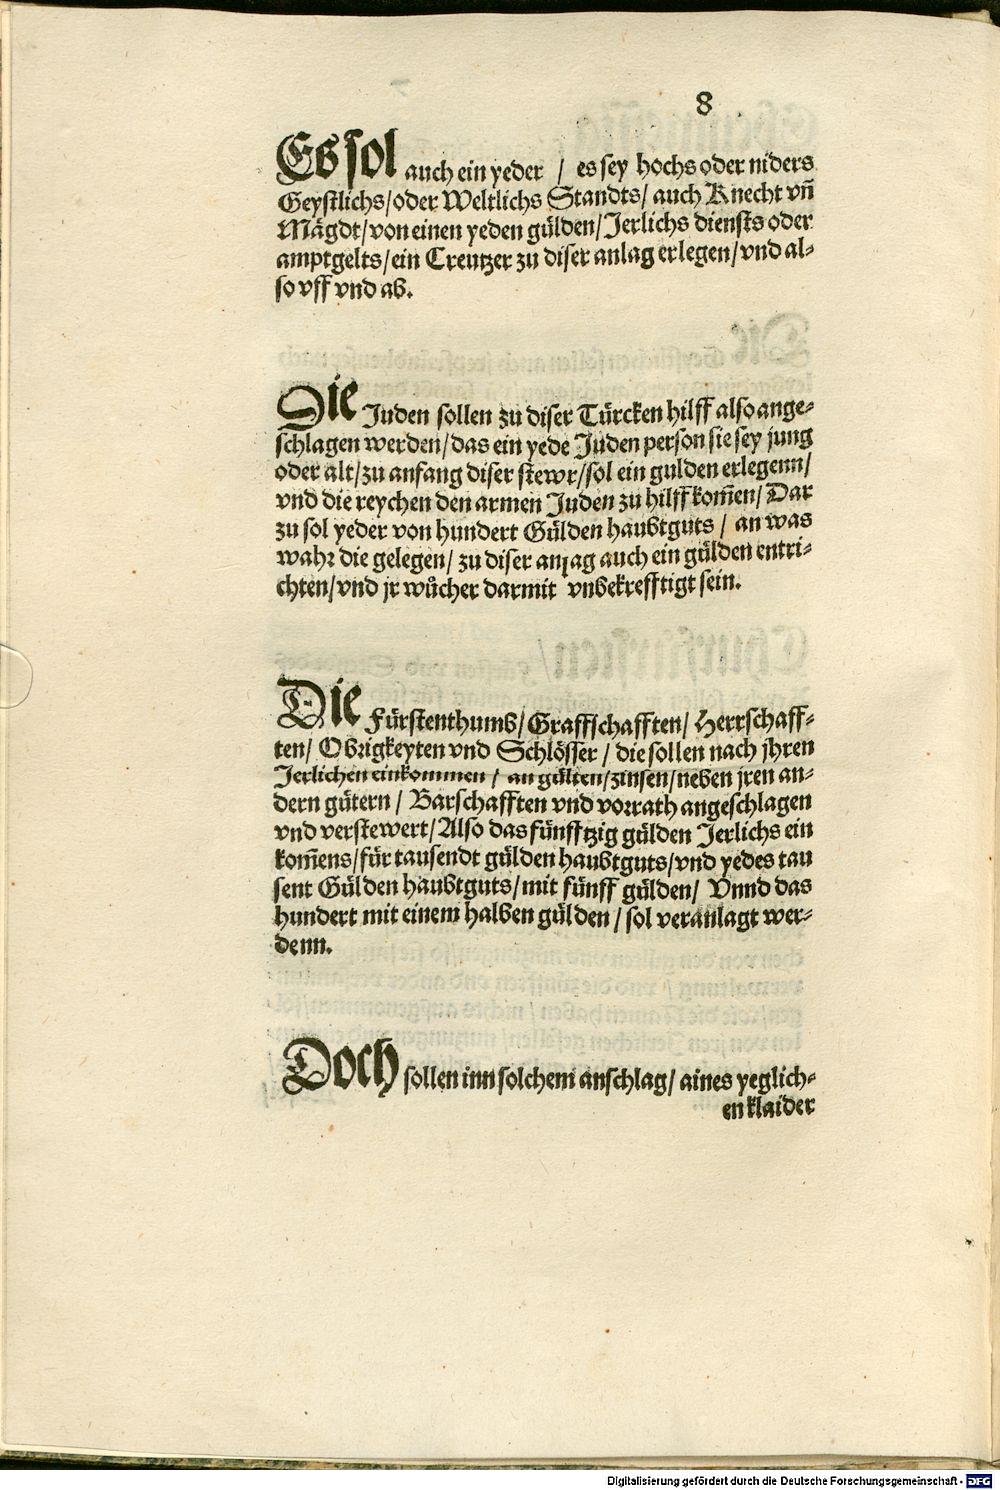 8
Es sol auch ein yeder / es sey hochs oder niders
Geystlichs/oder Weltlichs Standts/ auch Knecht vñ
Mägdt/von einen yeden gülden/Jerlichs diensts oder
amptgelts/ein Creutzer zu diser anlag erlegen/vnd al⸗
so vff vnd ab.
Die Juden sollen zu diser Türcken hilff also ange⸗
schlagen werden/das ein yede Juden person sie sey jung
oder alt/zu anfang diser stewr/sol ein gulden erlegenn/
vnd die reychen den armen Juden zu hilff kom̃en/ Dar
zu sol yeder von hundert Gülden haubtguts / an was
wahr die gelegen/ zu diser anlag auch ein gülden entri⸗
chten/vnd jr wůcher darmit vnbekrefftigt sein.
Die Fürstenthumb/Graffschafften/ Herrschaff⸗
ten/ Obrigkeyten vnd Schlösser / die sollen nach jhren
Jerlichen einkommen / an gülten/zinsen/neben jren an⸗
dern gütern / Barschafften vnd vorrath angeschlagen
vnd verstewert/Also das fünfftzig gülden Jerlichs ein
kom̃ens/für tausendt gülden haubtguts/vnd yedes tau
sent Gülden haubtguts/mit fünff gülden/ Vnnd das
hundert mit einem halben gülden / sol veranlagt wer⸗
denn.
Doch sollen inn solchem anschlag/ aines yeglich⸗
en klaider
Digitalisierung gefördert durch die Deutsche Forschungsgemeinschaft - DFG